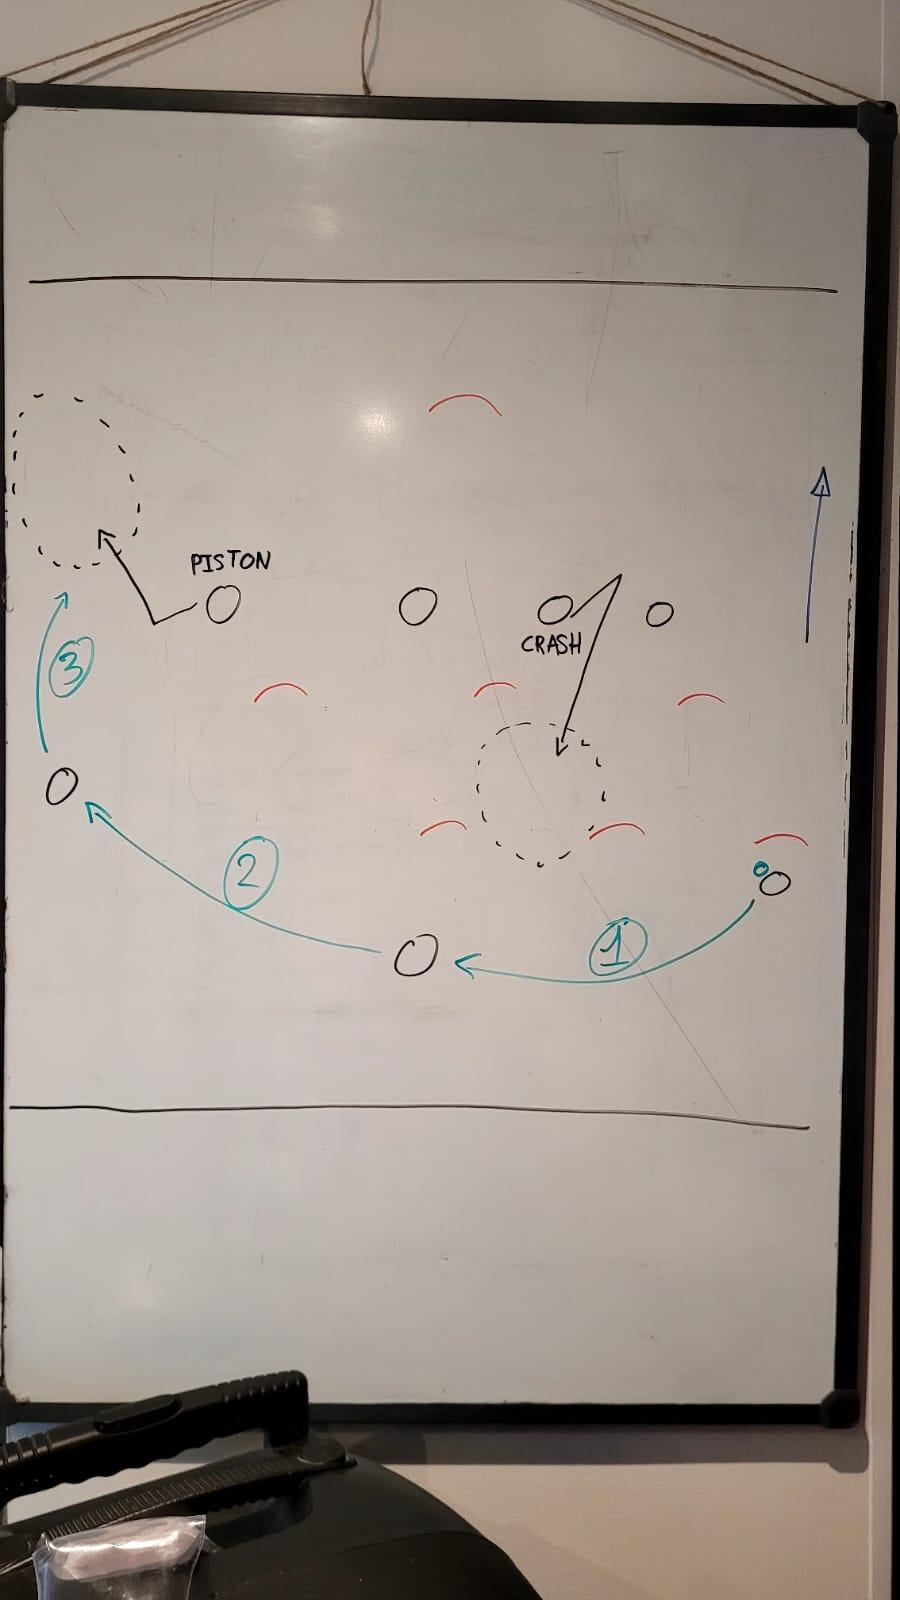 PISTON
CRASH
3
2
1